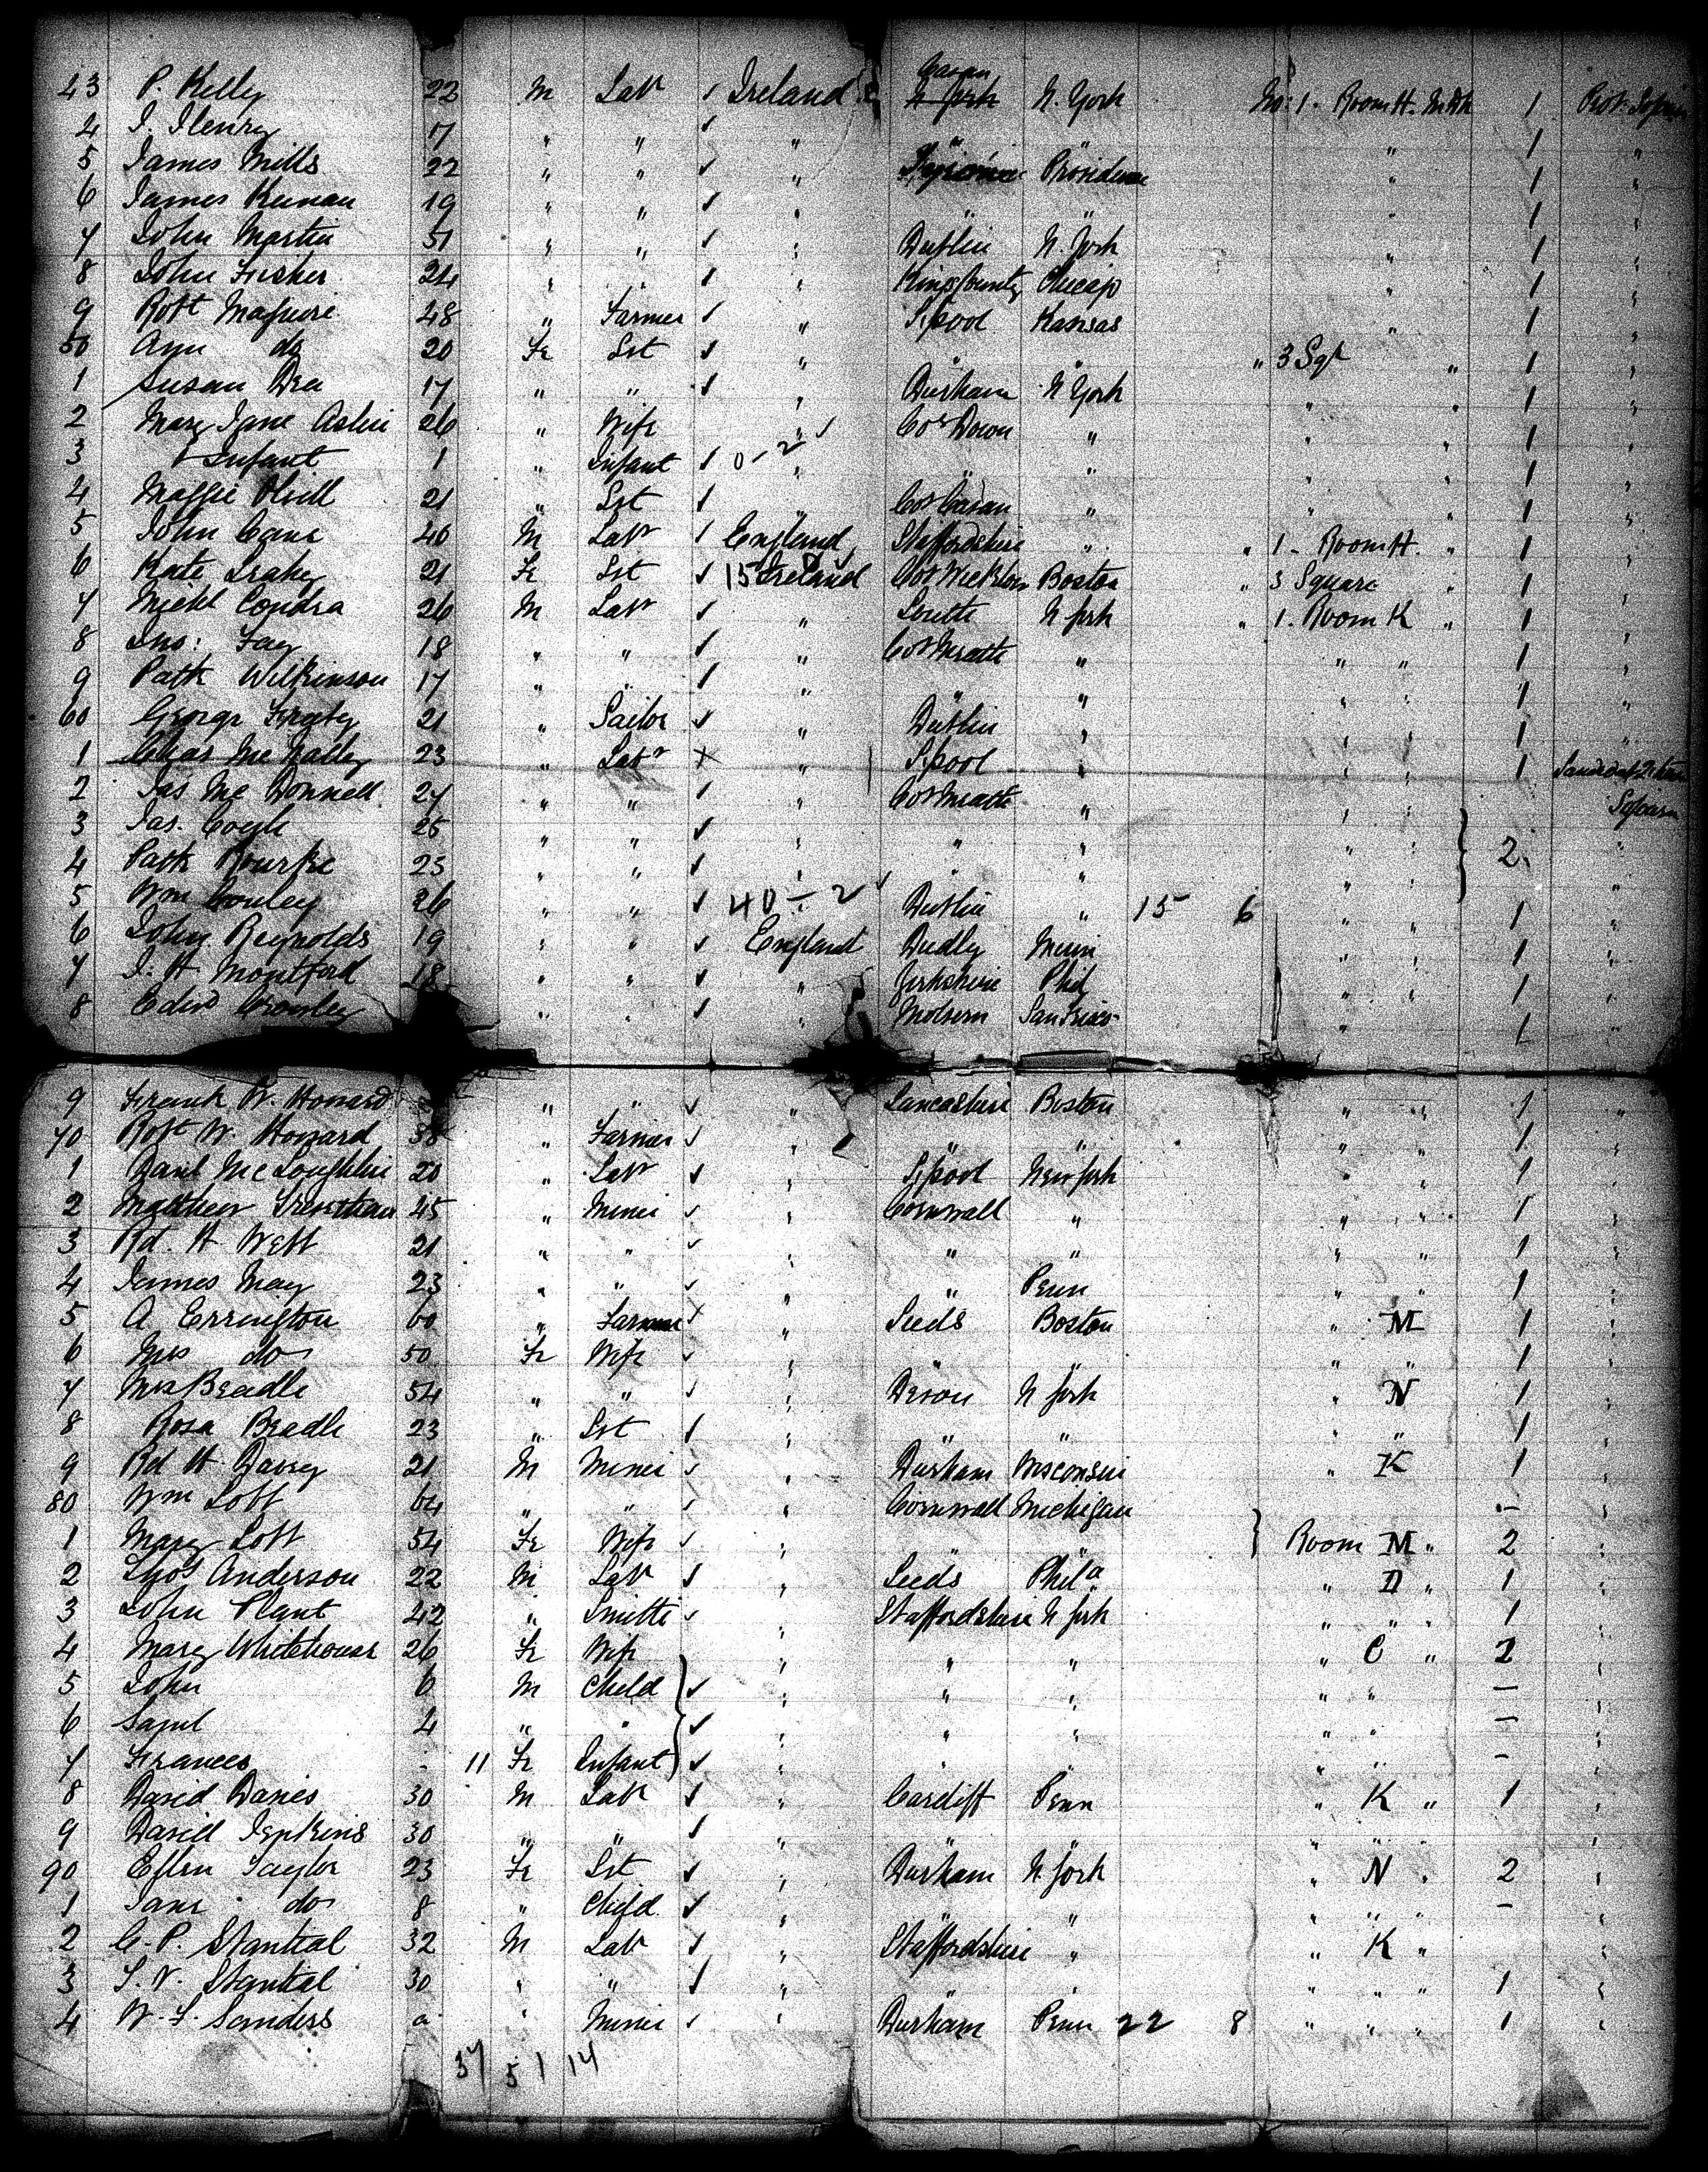 43 P. Kelly 22 M Labr Ireland Cavan N. York N. York No. 1. Room H. 1
4 J. Henry 17 " " " " " " 1 "
5 James Mills 22 " " " Providence " 1 "
6 James Keenan 19 " " " " " " 1 "
7 John Martin 51 " " " Dublin N. York " 1 "
8 John Fisher 24 " " " Kings County Chicago " 1 "
9 Robt Maguire 48 " Farmer " L'pool Kansas " 1 "
50 Ann do 20 Fe Svt " " " " 3 Sqr " 1 "
1 Susan Rea 17 " " " Durham N York " " 1 "
2 Mary Jane Aslin 26 " Wife " Coy Down " " " 1 "
3 Infant 1 " Infant 0 - 2 " " " " " 1 "
4 Maggie 21 " Svt " Coy Cavan " " " 1 "
5 John Cane 40 M Labr England Staffordshire " " 1 - Room H. " 1 "
6 Kate 21 Fe Svt 15 Ireland Coy Wicklow Boston " 3 Square " 1 "
7 Michl Condra 26 M Labr " Louth N York " 1. Room K " 1 "
8 Jno: Fay 18 " " " Coy Meath " " " 1 "
9 Patk Wilkinson 17 " " " " " " " 1 "
60 George 21 " Sailor " Dublin " " " 1 "
1 Chas McNalley 23 " Labr X " L'pool " " " 1
2 Jas McDonnell 27 " " " Coy Meath " " "
3 Jas. Coyle 25 " " " " " " " 2 "
4 Patk Rourke 23 " " " " " " " "
5 Wm Conley 26 " " 40 - 2 Dublin " 15 6 " " 1 "
6 John Reynolds 19 " " England Dudley " " 1 "
7 J. H. Montford 18 " " " Yorkshire Phil " " 1 "
8 Edwd Cromley " " " San Frisco " 1 "
9 Frank W. Howard " " " Lancashire Boston " " 1 "
70 Robt W. Howard 38 " Farmer " " " " " 1 "
1 Danl McLoughlin 20 " Labr " L'pool New York " " 1 "
2 Matthew Trewithan 45 " Miner " Cornwall " " " 1 "
3 Rd. H Webb 21 " " " " " " " 1 "
4 James May 23 " " " " Penn " " 1 "
5 A Errington 60 " Farmer " Leeds Boston " M 1 "
6 Mrs do 50 Fe Wife " " " " " 1 "
7 Mrs Beadle 54 " " " Devon N York " N 1 "
8 Rosa Beadle 23 " Svt " " " " " 1 "
9 Rd H Davey 21 M Miner " Durham Wisconsin " K 1 "
80 Wm Lobb 64 " " " Cornwall Michigan - "
1 Mary Lobb 54 Fe Wife " " " Room M " 2 "
2 Thos Anderson 22 M Labr " Leeds Phila " D " 1 "
3 John Plant 42 " Smith " Staffordshire N York " " " 1 "
4 Mary Whitehouse 26 Fe Wife " " " " C " 2 "
5 John 6 M Child " " " " " - "
6 Saml 4 " " " " " " " - "
7 Frances - 11 Fe Infant " " " " " - "
8 David Davies 30 M Labr " Cardiff Penn " K " 1 "
9 David Jenkins 30 " " " " " " " " "
90 Ellen Taylor 23 Fe Svt " Durham N. York " N " 2 "
1 Jane do 8 " Child " " " " " " - "
2 G. P. Stantial 32 M Labr " Staffordshire " " K " "
3 S. V. Stantial 30 " " " " " " " " 1 "
4 W. F. Sanders a " Miner " Durham Penn 22 8 " " " 1 "
37 5 1 14